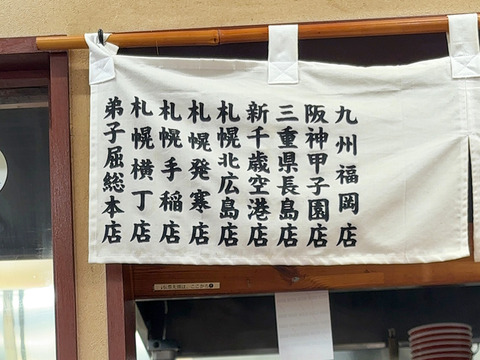 九州福岡店
阪神甲子園店
三重県長島店
新千歳空港店
札幌北広島店
札幌発寒店
札幌手稲店
札幌横丁店
弟子屈総本店